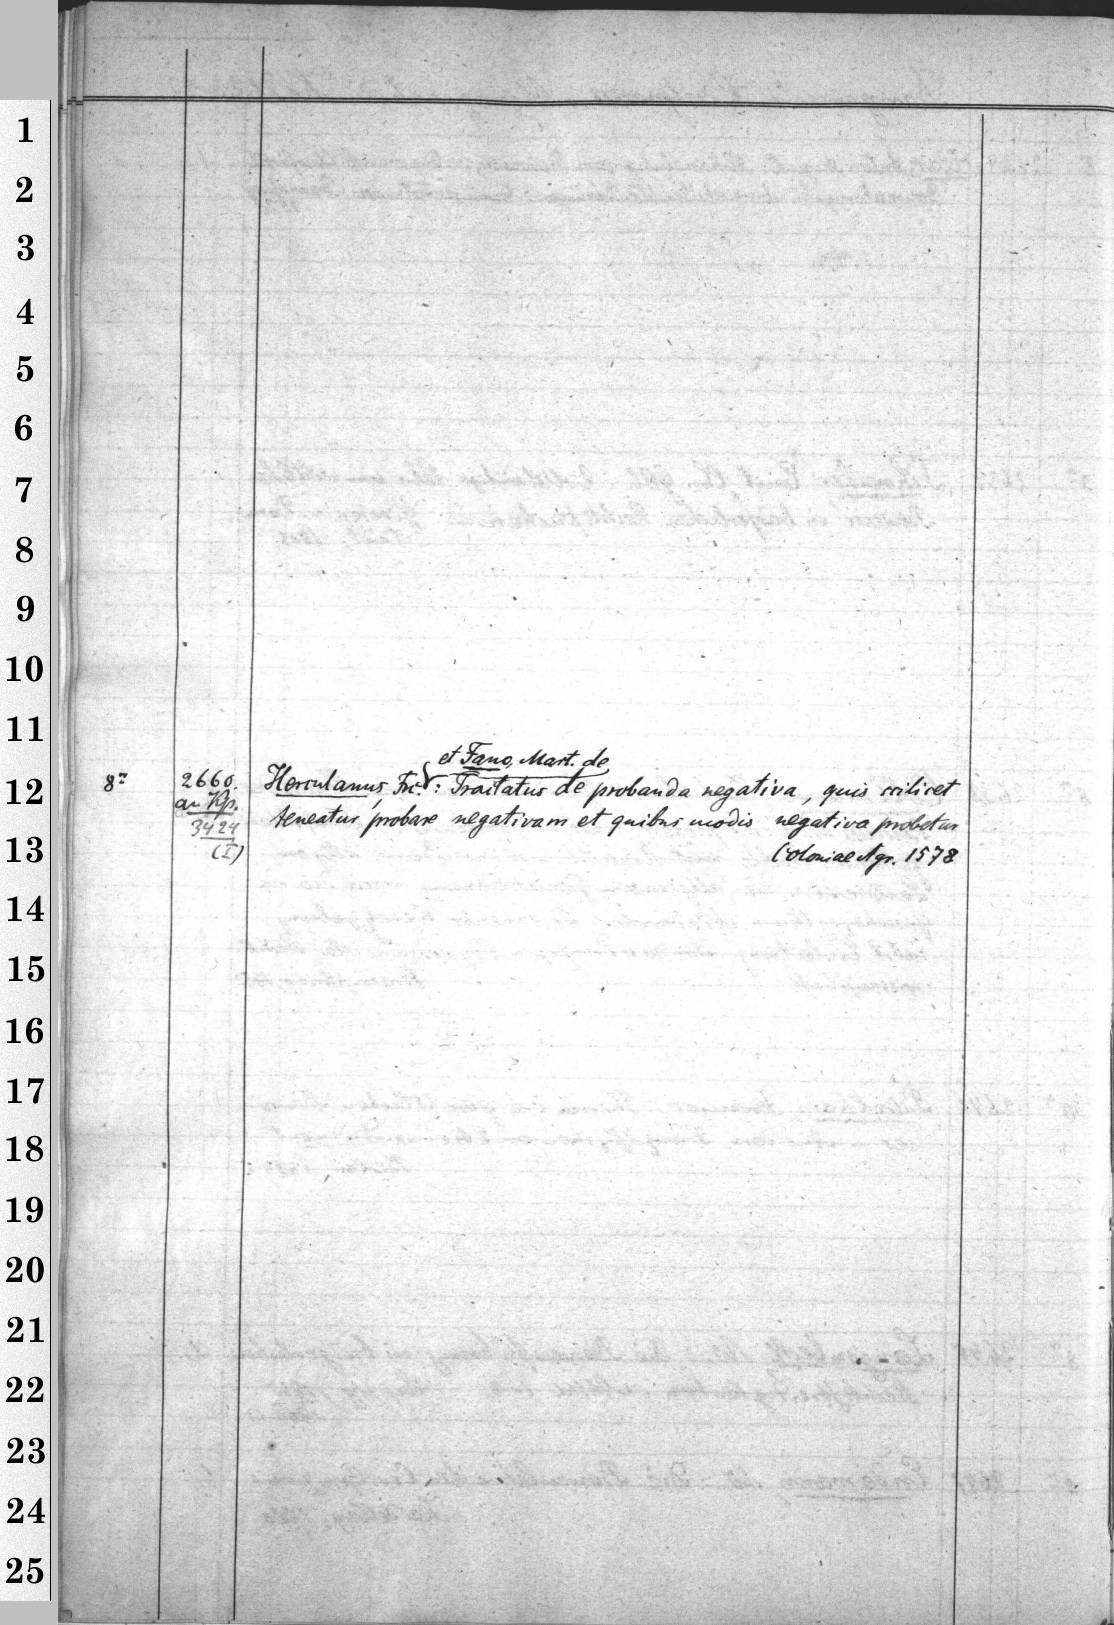 et Fano, Mart. de
8° 2660. Herculanus, Frc.: Tractatus de probanda negativa, quis scilicet
an Kps. teneatur probare negativam et quibus modis negativa probetur
3424
(I) Coloniae Agr. 1578
1
2
3
4
5
6
7
8
9
10
11
12
13
14
15
16
17
18
19
20
21
22
23
24
25